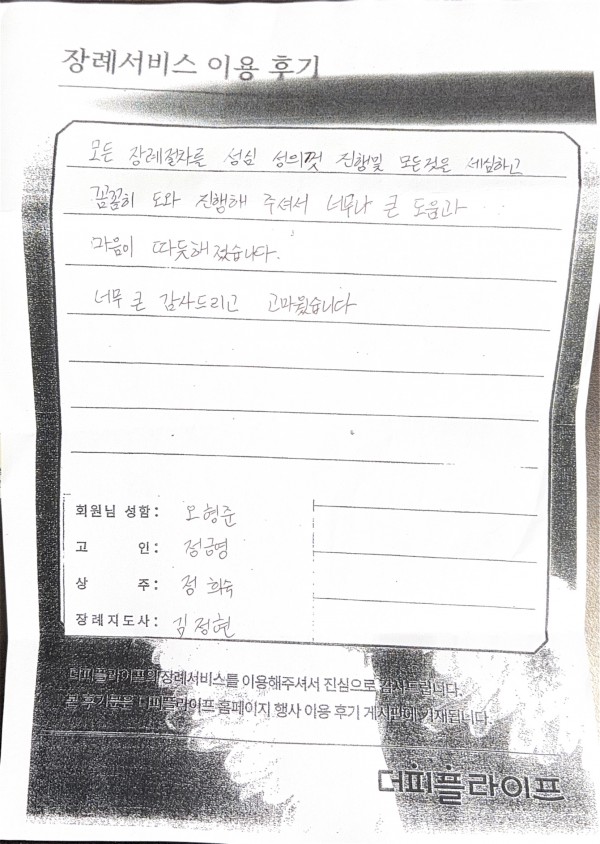 장례서비스 이용 후기
모든 장례절차를 성심 성의껏 진행및 모든것을 세심하고
꼼꼼히 도와 진행해 주셔서 너무나 큰 도움과
마음이 따듯해졌습니다.
너무 큰 감사드리고 고마웠습니다
회원님 성함: 오형준
고 인: 정금영
상 주: 정희숙
장례지도사: 김정현
더피플라이프의 장례서비스를 이용해주셔서 진심으로 감사드립니다.
본 후기글은 더피플라이프 홈페이지 행사 이용 후기 게시판에 기재됩니다.
더피플라이프